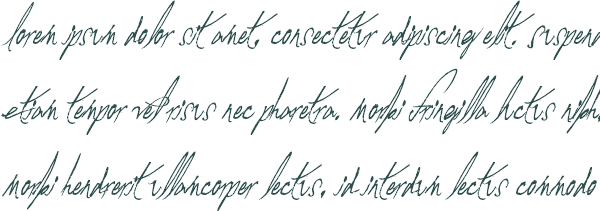 lorem ipsum dolor sit amet, consectetur adipiscing elit. suspend
etiam tempor vel risus nec pharetra. morbi fringilla luctus nibh,
morbi hendrerit ullamcorper lectus, id interdum lectus commodo